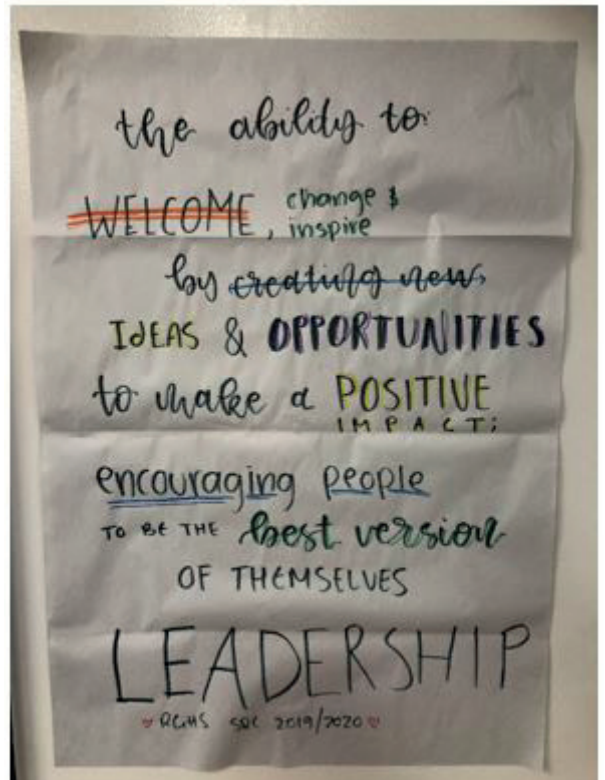 the ability to:
WELCOME, change &
inspire
by creating new
IDEAS & OPPORTUNITIES
to make a POSITIVE
IMPACT;
encouraging people
TO BE THE best version
OF THEMSELVES
LEADERSHIP
RGHS SRC 2019/2020